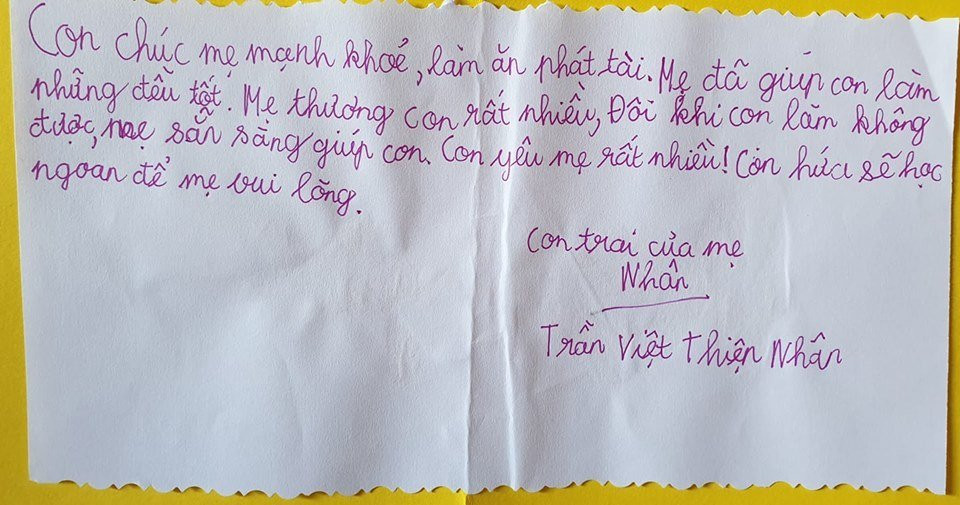 Con chúc mẹ mạnh khoẻ, làm ăn phát tài. Mẹ đã giúp con làm
những đều tốt. Mẹ thương con rất nhiều, Đôi khi con làm không
được, mẹ sẵn sàng giúp con. Con yêu mẹ rất nhiều! Con hứa sẽ học
ngoan để mẹ vui lõng.
Con trai của mẹ
Nhân
Trần Việt Thiện Nhân